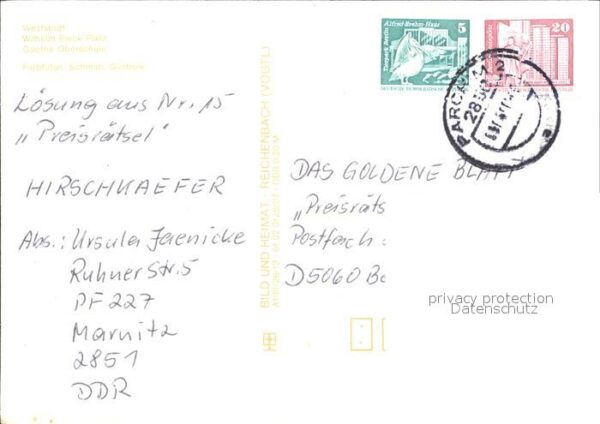 Wilhelm-Pieck-Platz
Goethe-Oberschule
Lösung aus Nr. 15
„Preisrätsel"
HIRSCHKAEFER
Abs.: Ursula Jaenicke
Ruhner Str. 5
PF 227
Marnitz
2851
DDR
BILD UND HEIMAT · REICHENBACH (VOGTL)
Alfred-Brehm-Haus
Tierpark Berlin
5
20
PARCHIM 2
DAS GOLDENE BLATT
„Preisräts
Postfach
D5060 Be
privacy protection
Datenschutz